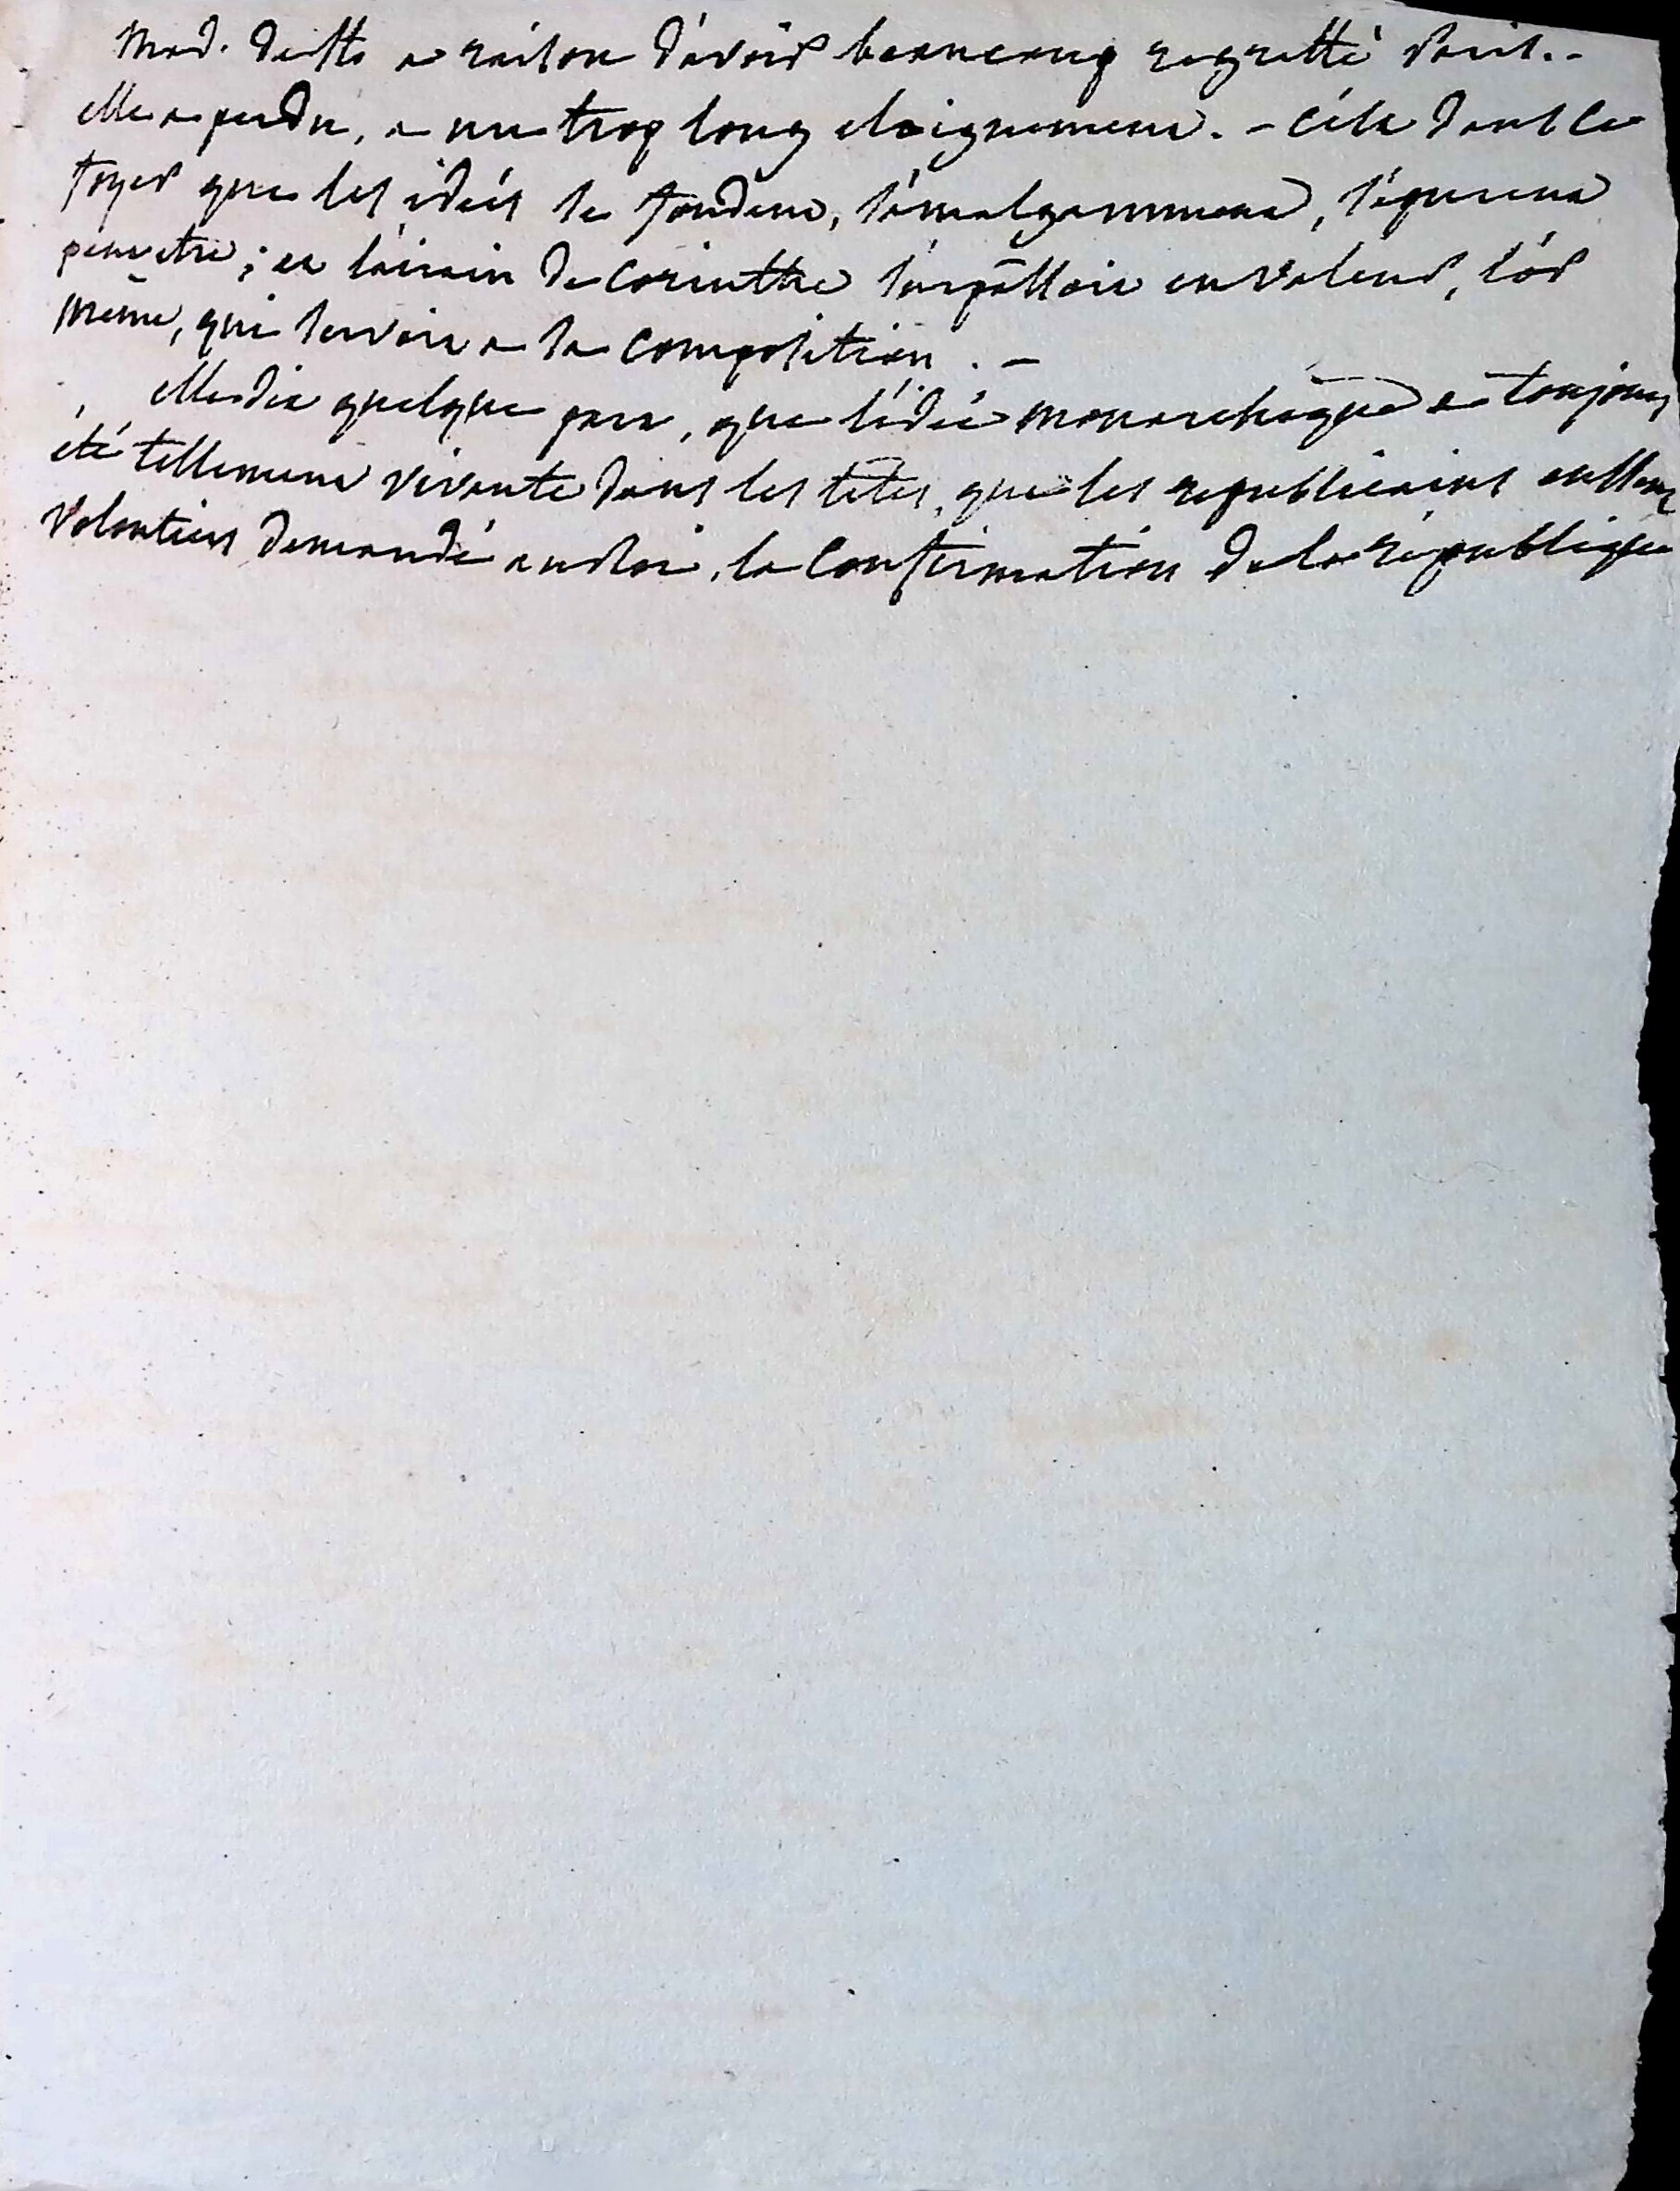 Mad. de Sta a raison d'avoir beaucoup regretté Paris. -
elle a perdu, a un trop long eloignement. - c'est dans ce
foyer que les idées se fondent, s'amalgamment, s'épurent
peut etre ; et l'airain de Corinthe surpassoit en valeur, l'or
même, qui servoit a sa composition . -
elle dit quelque part, que l'idée monarchique a toujours
été tellement vivante dans les tetes, que les republicains eussent
volontiers demandé au Roi, la confirmation de la république